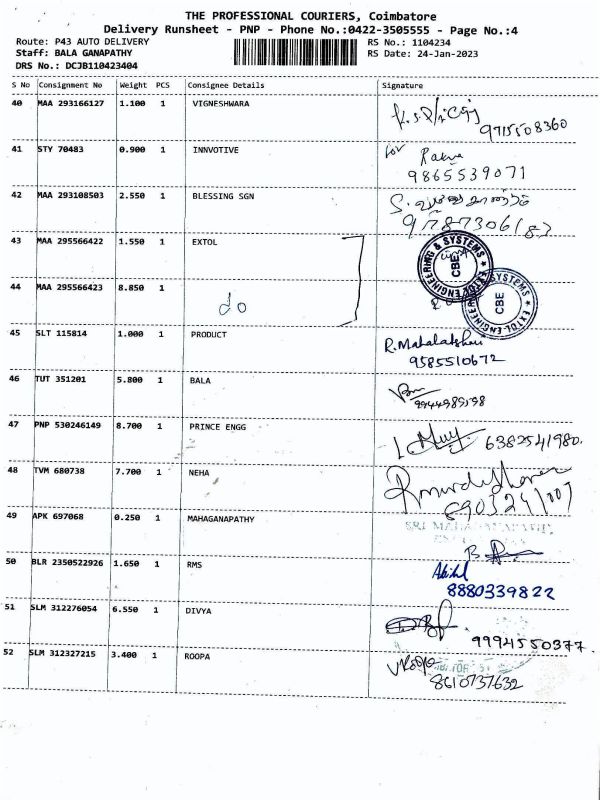 THE PROFESSIONAL COURIERS, Coimbatore
Delivery Runsheet - PNP - Phone No.:0422-3505555 - Page No.:4
Route: P43 AUTO DELIVERY RS No.: 1104234
Staff: BALA GANAPATHY RS Date: 24-Jan-2023
DRS No.: DCJB110423404
S No Consignment No Weight PCS Consignee Details Signature
40 MAA 293166127 1.100 1 VIGNESHWARA
9715508360
41 STY 70483 0.900 1 INNVOTIVE
for
9865539071
42 MAA 293108503 2.550 1 BLESSING SGN
9787306183
43 MAA 295566422 1.550 1 EXTOL
ENGINEERING & SYSTEMS CBE
44 MAA 295566423 8.850 1 do
EXTOL ENGINEERING SYSTEMS CBE
45 SLT 115814 1.000 1 PRODUCT
R. Mahalakshmi
9585510672
46 TUT 351201 5.800 1 BALA
47 PNP 530246149 8.700 1 PRINCE ENGG
6382541980.
48 TVM 680738 7.700 1 NEHA
49 APK 697068 0.250 1 MAHAGANAPATHY
SRI MAHAGANAPATHY
50 BLR 2350522926 1.650 1 RMS
8880339822
51 SLM 312276054 6.550 1 DIVYA
9994550377.
52 SLM 312327215 3.400 1 ROOPA
8610737632